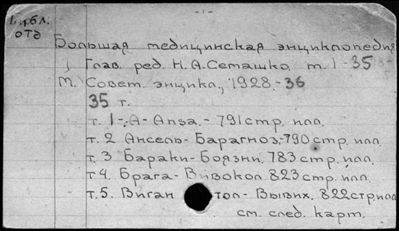 Библ.
отд
- 1 -
Большая медицинская энциклопедия
Глав. ред. Н.А. Семашко т. 1-35
М. Совет. энцикл., 1928-36
35 т.
т. 1 - А - Анза. - 791 стр. илл.
т. 2 Ансель - Барагноз. - 790 стр. илл
т. 3 Бараки - Боязни. 783 стр. илл.
т 4. Брага - Вивокол 823 стр. илл.
т. 5. Виган тол - Вывих. 822 стр илл
см. след. карт.